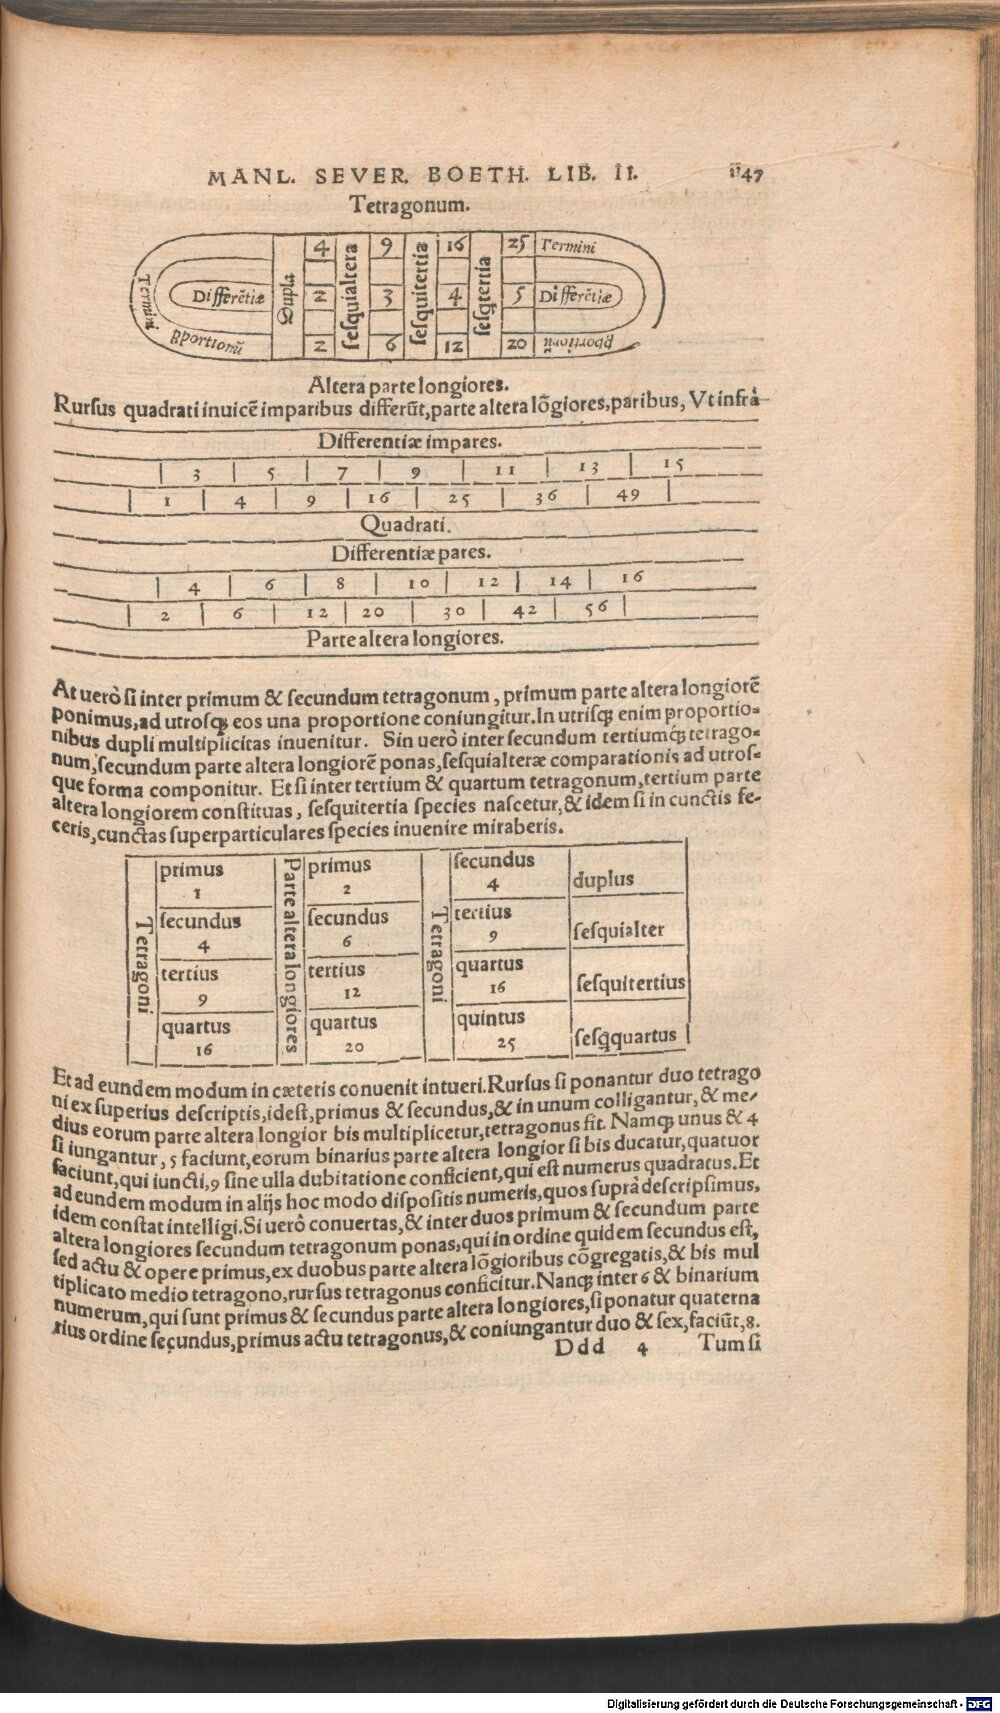 MANL. SEVER. BOETH. LIB. II. 1147
Tetragonum.
Termini
Differētiæ
Dupla
4
sesquialtera
9
sesquitertiæ
16
sesqtertia
25
Termini
2
3
4
5
Differētiæ
2
6
12
20
Altera parte longiores.
Rursus quadrati inuicē imparibus differūt, parte altera lōgiores, paribus, Vt infrà
Differentiæ impares.
3 5 7 9 11 13 15
1 4 9 16 25 36 49
Quadrati.
Differentiæ pares.
4 6 8 10 12 14 16
2 6 12 20 30 42 56
Parte altera longiores.
At uerò si inter primum & secundum tetragonum, primum parte altera longiorē
ponimus, ad utrosq; eos una proportione coniungitur. In utrisq; enim proportio=
nibus dupli multiplicitas inuenitur. Sin uerò inter secundum tertiumq́; tetrago=
num, secundum parte altera longiorē ponas, sesquialteræ comparationis ad utros=
que forma componitur. Et si inter tertium & quartum tetragonum, tertium parte
altera longiorem constituas, sesquitertia species nascetur, & idem si in cunctis fe-
ceris, cunctas superparticulares species inuenire miraberis.
Tetragoni
primus
1
secundus
4
tertius
9
quartus
16
Parte altera longiores
primus
2
secundus
6
tertius
12
quartus
20
Tetragoni
secundus
4
tertius
9
quartus
16
quintus
25
duplus
sesquialter
sesquitertius
sesq̃quartus
Et ad eundem modum in cæteris conuenit intueri. Rursus si ponantur duo tetrago
ni ex superius descriptis, idest, primus & secundus, & in unum colligantur, & me-
dius eorum parte altera longior bis multiplicetur, tetragonus fit. Namq; unus & 4
si iungantur, 5 faciunt, eorum binarius parte altera longior si bis ducatur, quatuor
faciunt, qui iuncti, 9 sine ulla dubitatione conficient, qui est numerus quadratus. Et
ad eundem modum in alijs hoc modo dispositis numeris, quos suprà descripsimus,
idem constat intelligi. Si uerô conuertas, & inter duos primum & secundum parte
altera longiores secundum tetragonum ponas, qui in ordine quidem secundus est,
sed actu & opere primus, ex duobus parte altera lōgioribus cōgregatis, & bis mul
tiplicato medio tetragono, rursus tetragonus conficitur. Nanq; inter 6 & binarium
numerum, qui sunt primus & secundus parte altera longiores, si ponatur quaterna
rius ordine secundus, primus actu tetragonus, & coniungantur duo & sex, faciūt, 8.
Ddd 4 Tum si
Digitalisierung gefördert durch die Deutsche Forschungsgemeinschaft - DFG